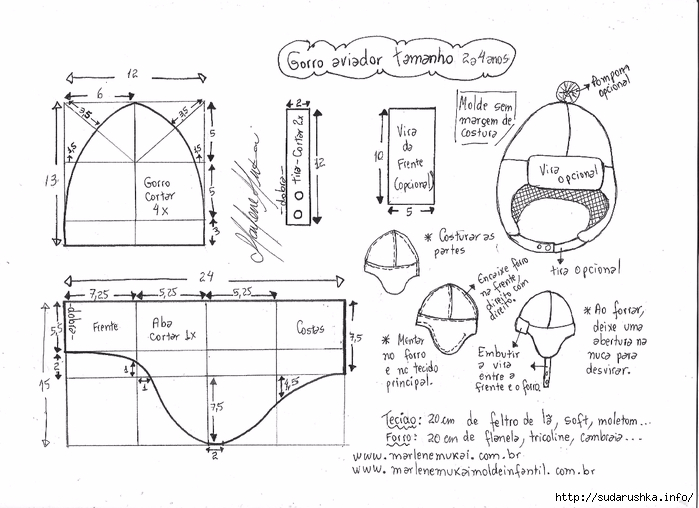 Gorro aviador tamanho 2a4anos
12
6
3,5
3,5
1,5
1,5
5
5
3
13
Gorro
Cortar
4x
2
dobra
tira-Cortar 2x
12
10
Vira
da
Frente
(opcional)
5
Molde sem
margem de
costura
Pompom
opcional
Vira
opcional
tira opcional
* Costurar as
partes
Encaixe forro
na frente,
direito com
direito.
* Montar
no forro
e no tecido
principal.
Embutir
a vira
entre a
frente e o forro.
* Ao forrar,
deixe uma
abertura na
nuca para
desvirar.
24
7,25
5,25
5,25
dobra
5,5
2
15
Frente
Aba
Cortar 1x
Costas
7,5
1
1
7,5
4,5
2
Tecido: 20cm de feltro de lã, soft, moletom...
Forro: 20cm de flanela, tricoline, cambraia...
www.marlenemukai.com.br
www.marlenemukaimoldeinfantil.com.br
http://sudarushka.info/